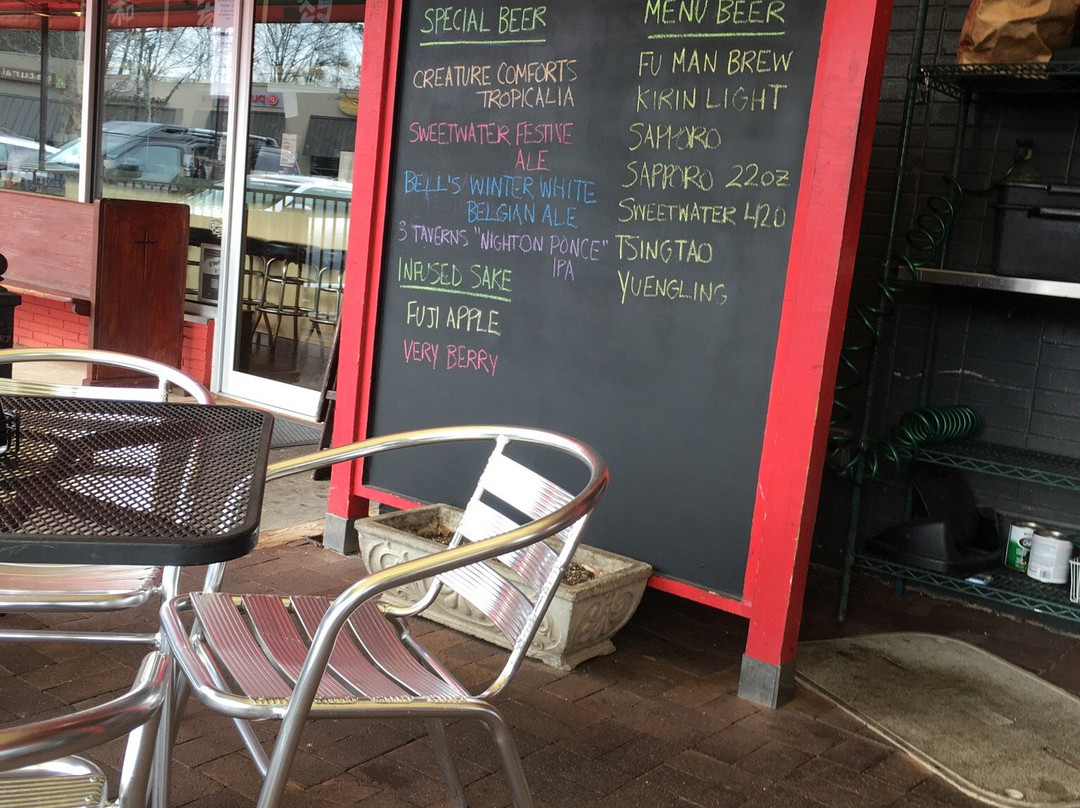 SPECIAL BEER
CREATURE COMFORTS
TROPICALIA
SWEETWATER FESTIVE
ALE
BELL'S WINTER WHITE
BELGIAN ALE
3 TAVERNS "NIGHT ON PONCE"
IPA
INFUSED SAKE
FUJI APPLE
VERY BERRY
MENU BEER
FU MAN BREW
KIRIN LIGHT
SAPPORO
SAPPORO 22oz
SWEETWATER 420
TSINGTAO
YUENGLING